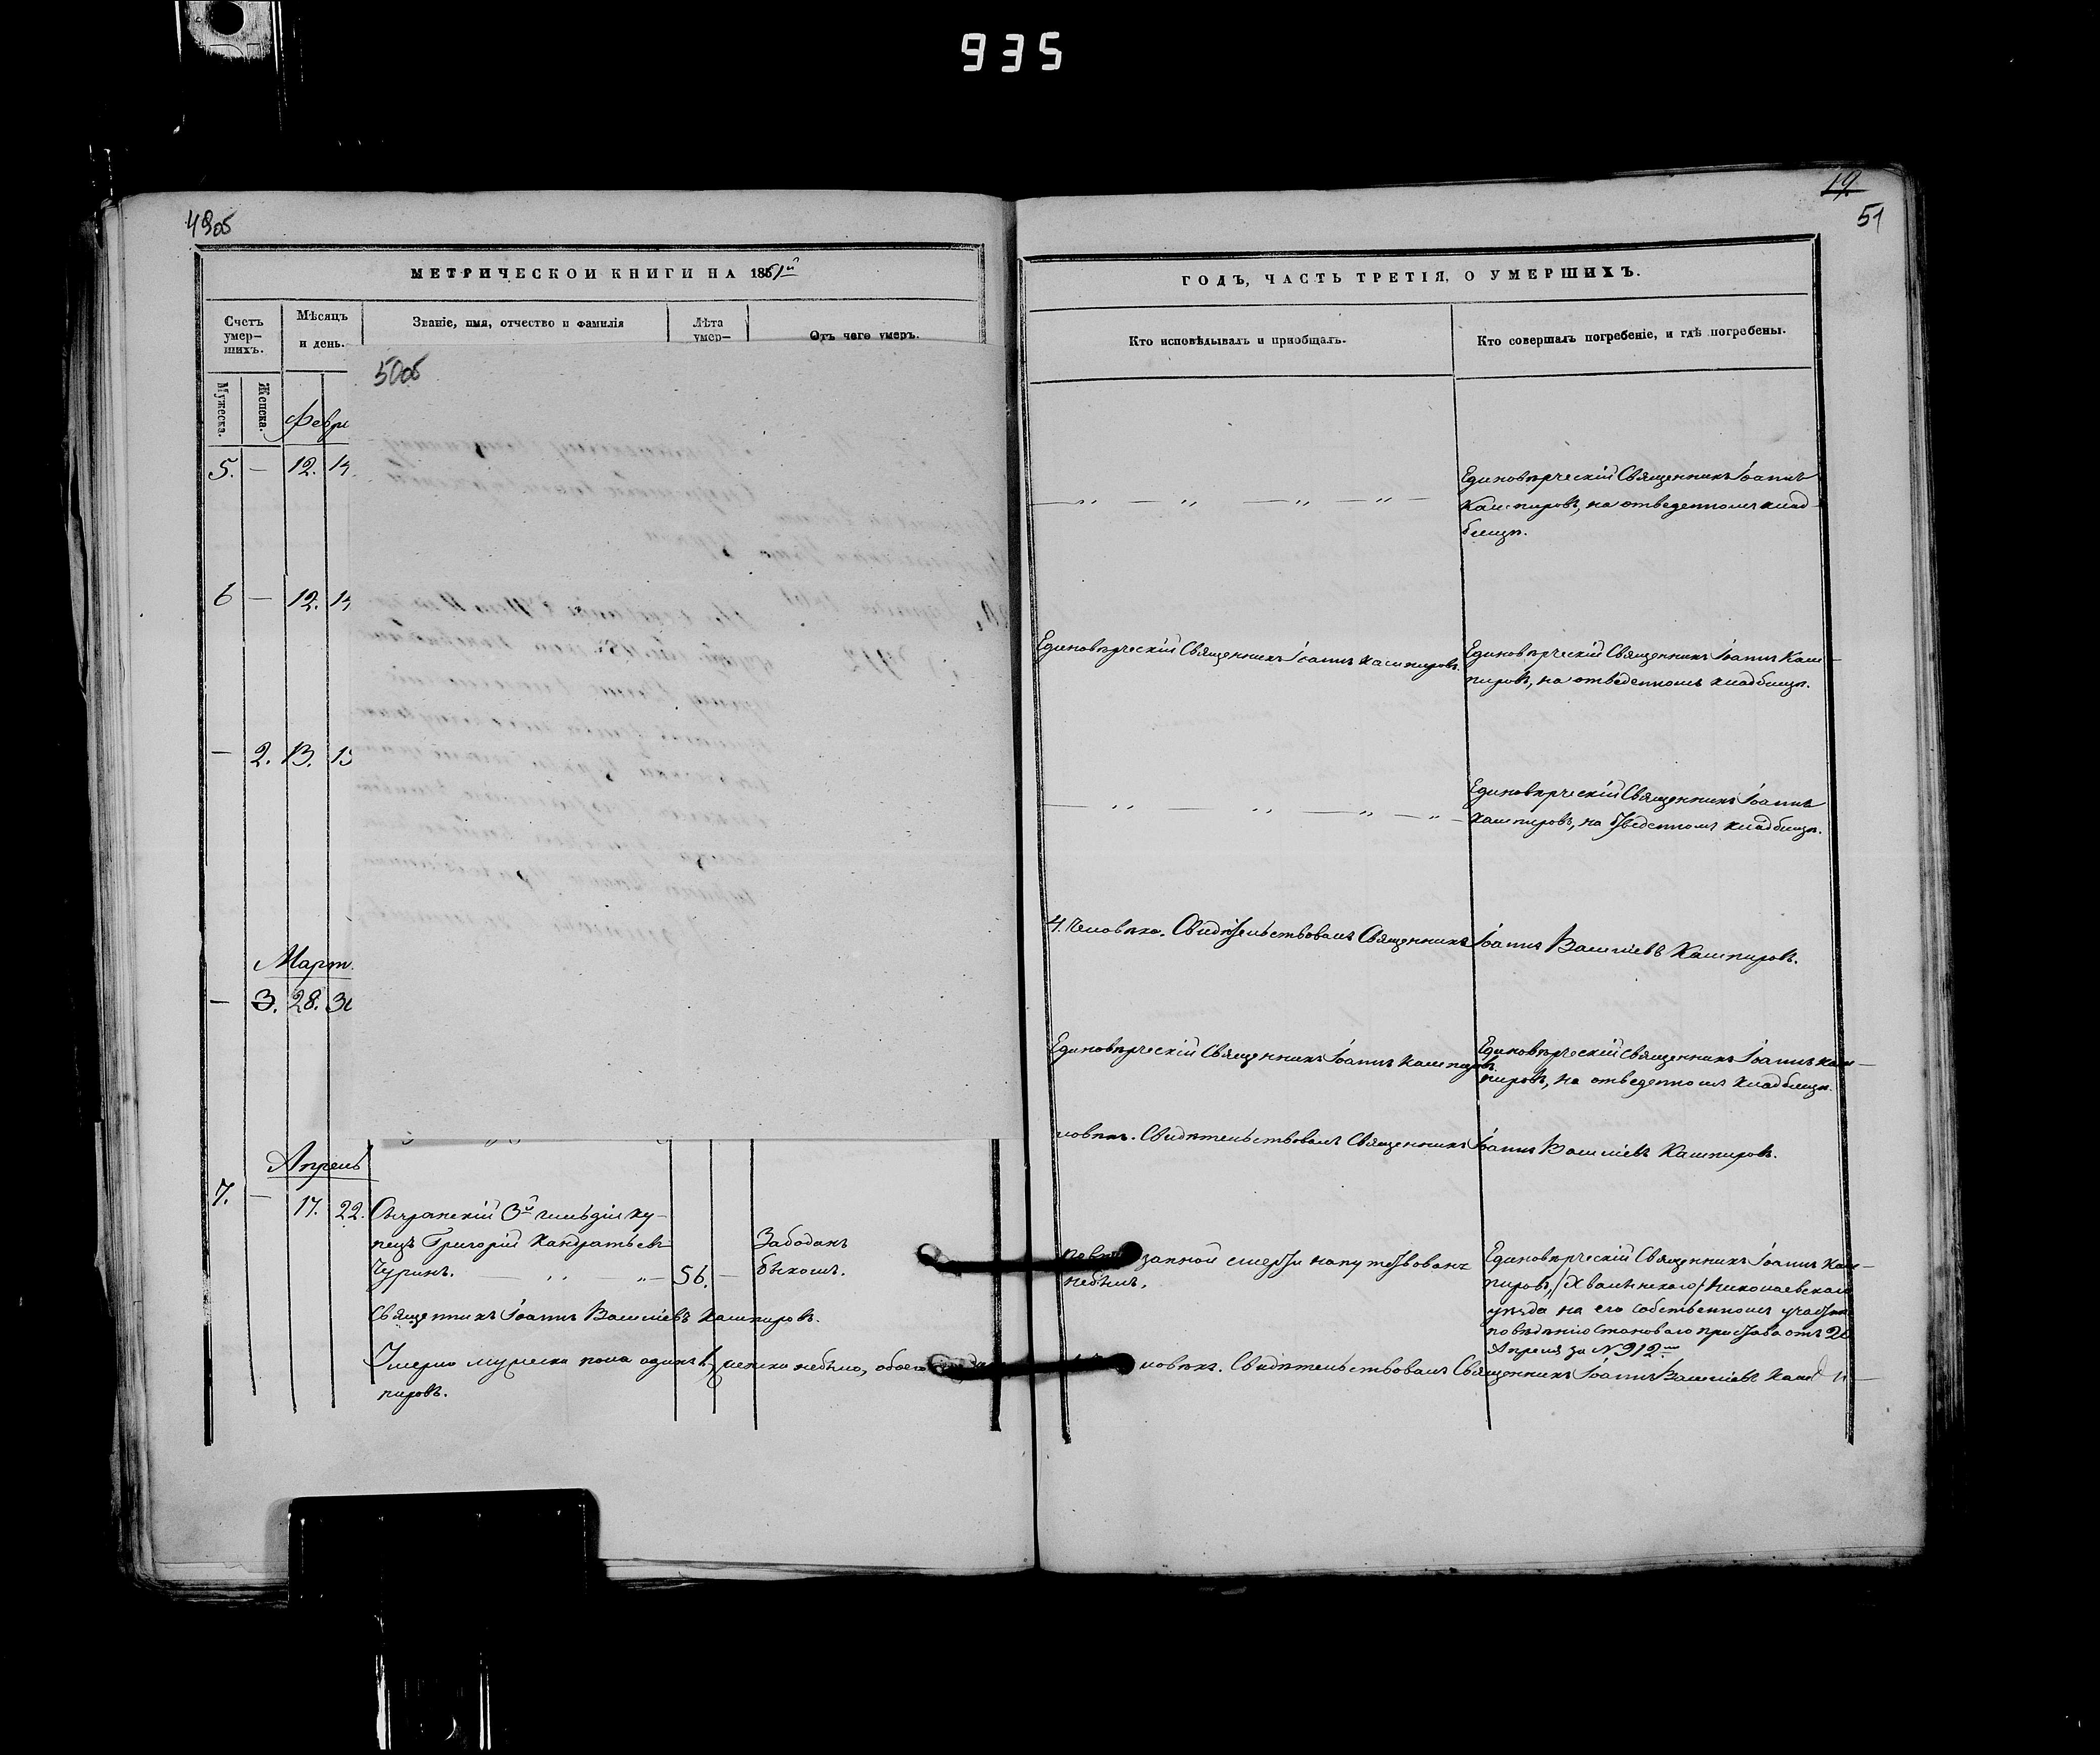 935
49об
19
51
МЕТРИЧЕСКОЙ КНИГИ НА 1851й
ГОДЪ, ЧАСТЬ ТРЕТІЯ, О УМЕРШИХЪ.
Счетъ умер-
шихъ.
Мѣсяцъ
и день.
Званіе, имя, отчество и фамилія
Лѣта
умер-
Отъ чего умеръ.
Кто исповѣдывалъ и пріобщалъ.
Кто совершалъ погребеніе, и гдѣ погребены.
Мужеска.
Женска.
50об
Февр
5. — 12. 14
Единовѣрческій Священникъ Іоаннъ
Кашпировъ, на отведенномъ клад-
бищѣ.
6 — 12. 14
Единовѣрческій Священникъ Іоаннъ Кашпировъ.
Единовѣрческій Священникъ Іоаннъ Каш-
пировъ, на отведенномъ кладбищѣ.
— 2. 13. 15
Единовѣрческій Священникъ Іоаннъ
Кашпировъ, на отведенномъ кладбищѣ.
4. Человѣка. Свидѣтельствовалъ Священникъ Іоаннъ Васильевъ Кашпировъ.
Март
— 3. 28. 30
Единовѣрческій Священникъ Іоаннъ Кашпировъ.
Единовѣрческій Священникъ Іоаннъ Каш-
пировъ, на отведенномъ кладбищѣ.
ловѣкъ. Свидѣтельствовалъ Священникъ Іоаннъ Васильевъ Кашпировъ.
Апрель
7. — 17. 22. Сызранскій 3й гильдіи ку-
пецъ Григорій Кандратьевъ
Чуринъ. 56.
Забоданъ
быкомъ.
запной смерти напутствованъ
небылъ.
Единовѣрческій Священникъ Іоаннъ Каш-
пировъ, /Хвалынскаго/ Николаевскаго
уѣзда на его собственномъ участкѣ
по вѣденію становаго пристава отъ 20
Апреля за №912м
Священникъ Іоаннъ Васильевъ Кашпировъ.
Умерло мужеска пола одинъ 1, женска небыло, обоего
ловѣкъ. Свидѣтельствовалъ Священникъ Іоаннъ Васильевъ Каш-
пировъ.